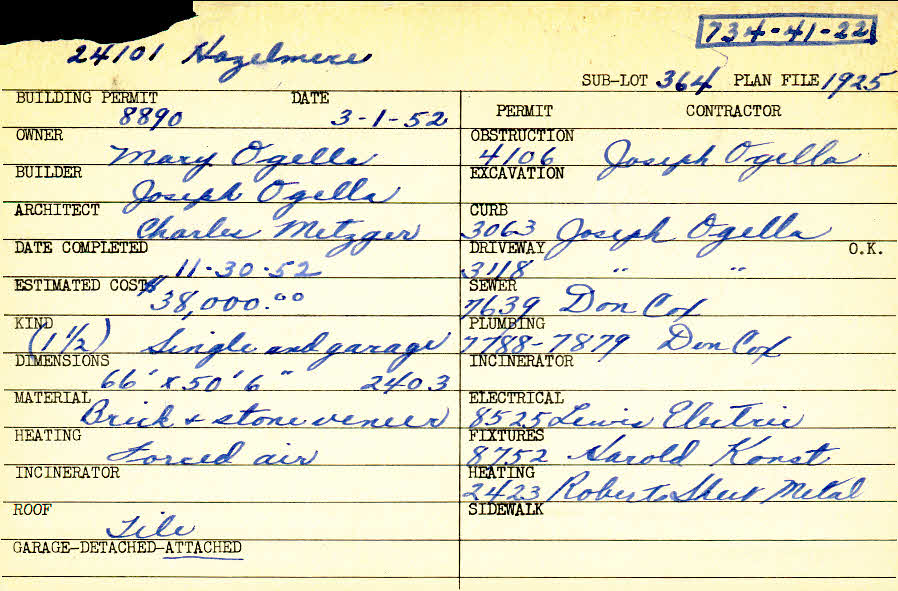 734-41-22
24101 Hazelmere
SUB-LOT 364 PLAN FILE 1925
BUILDING PERMIT DATE
8890 3-1-52
OWNER
Mary Ogella
BUILDER
Joseph Ogella
ARCHITECT
Charles Metzger
DATE COMPLETED
11-30-52
ESTIMATED COST
$38,000.00
KIND
(1 1/2) Single and garage
DIMENSIONS
66' x 50' 6" 2403
MATERIAL
Brick + stone veneer
HEATING
Forced air
INCINERATOR
ROOF
Tile
GARAGE-DETACHED-ATTACHED
PERMIT CONTRACTOR
OBSTRUCTION
4106 Joseph Ogella
EXCAVATION
CURB
3063 Joseph Ogella
DRIVEWAY O.K.
3118 " "
SEWER
7639 Don Cox
PLUMBING
7788-7879 Don Cox
INCINERATOR
ELECTRICAL
8525 Lewis Electric
FIXTURES
8752 Harold Konst
HEATING
2423 Roberts Sheet Metal
SIDEWALK